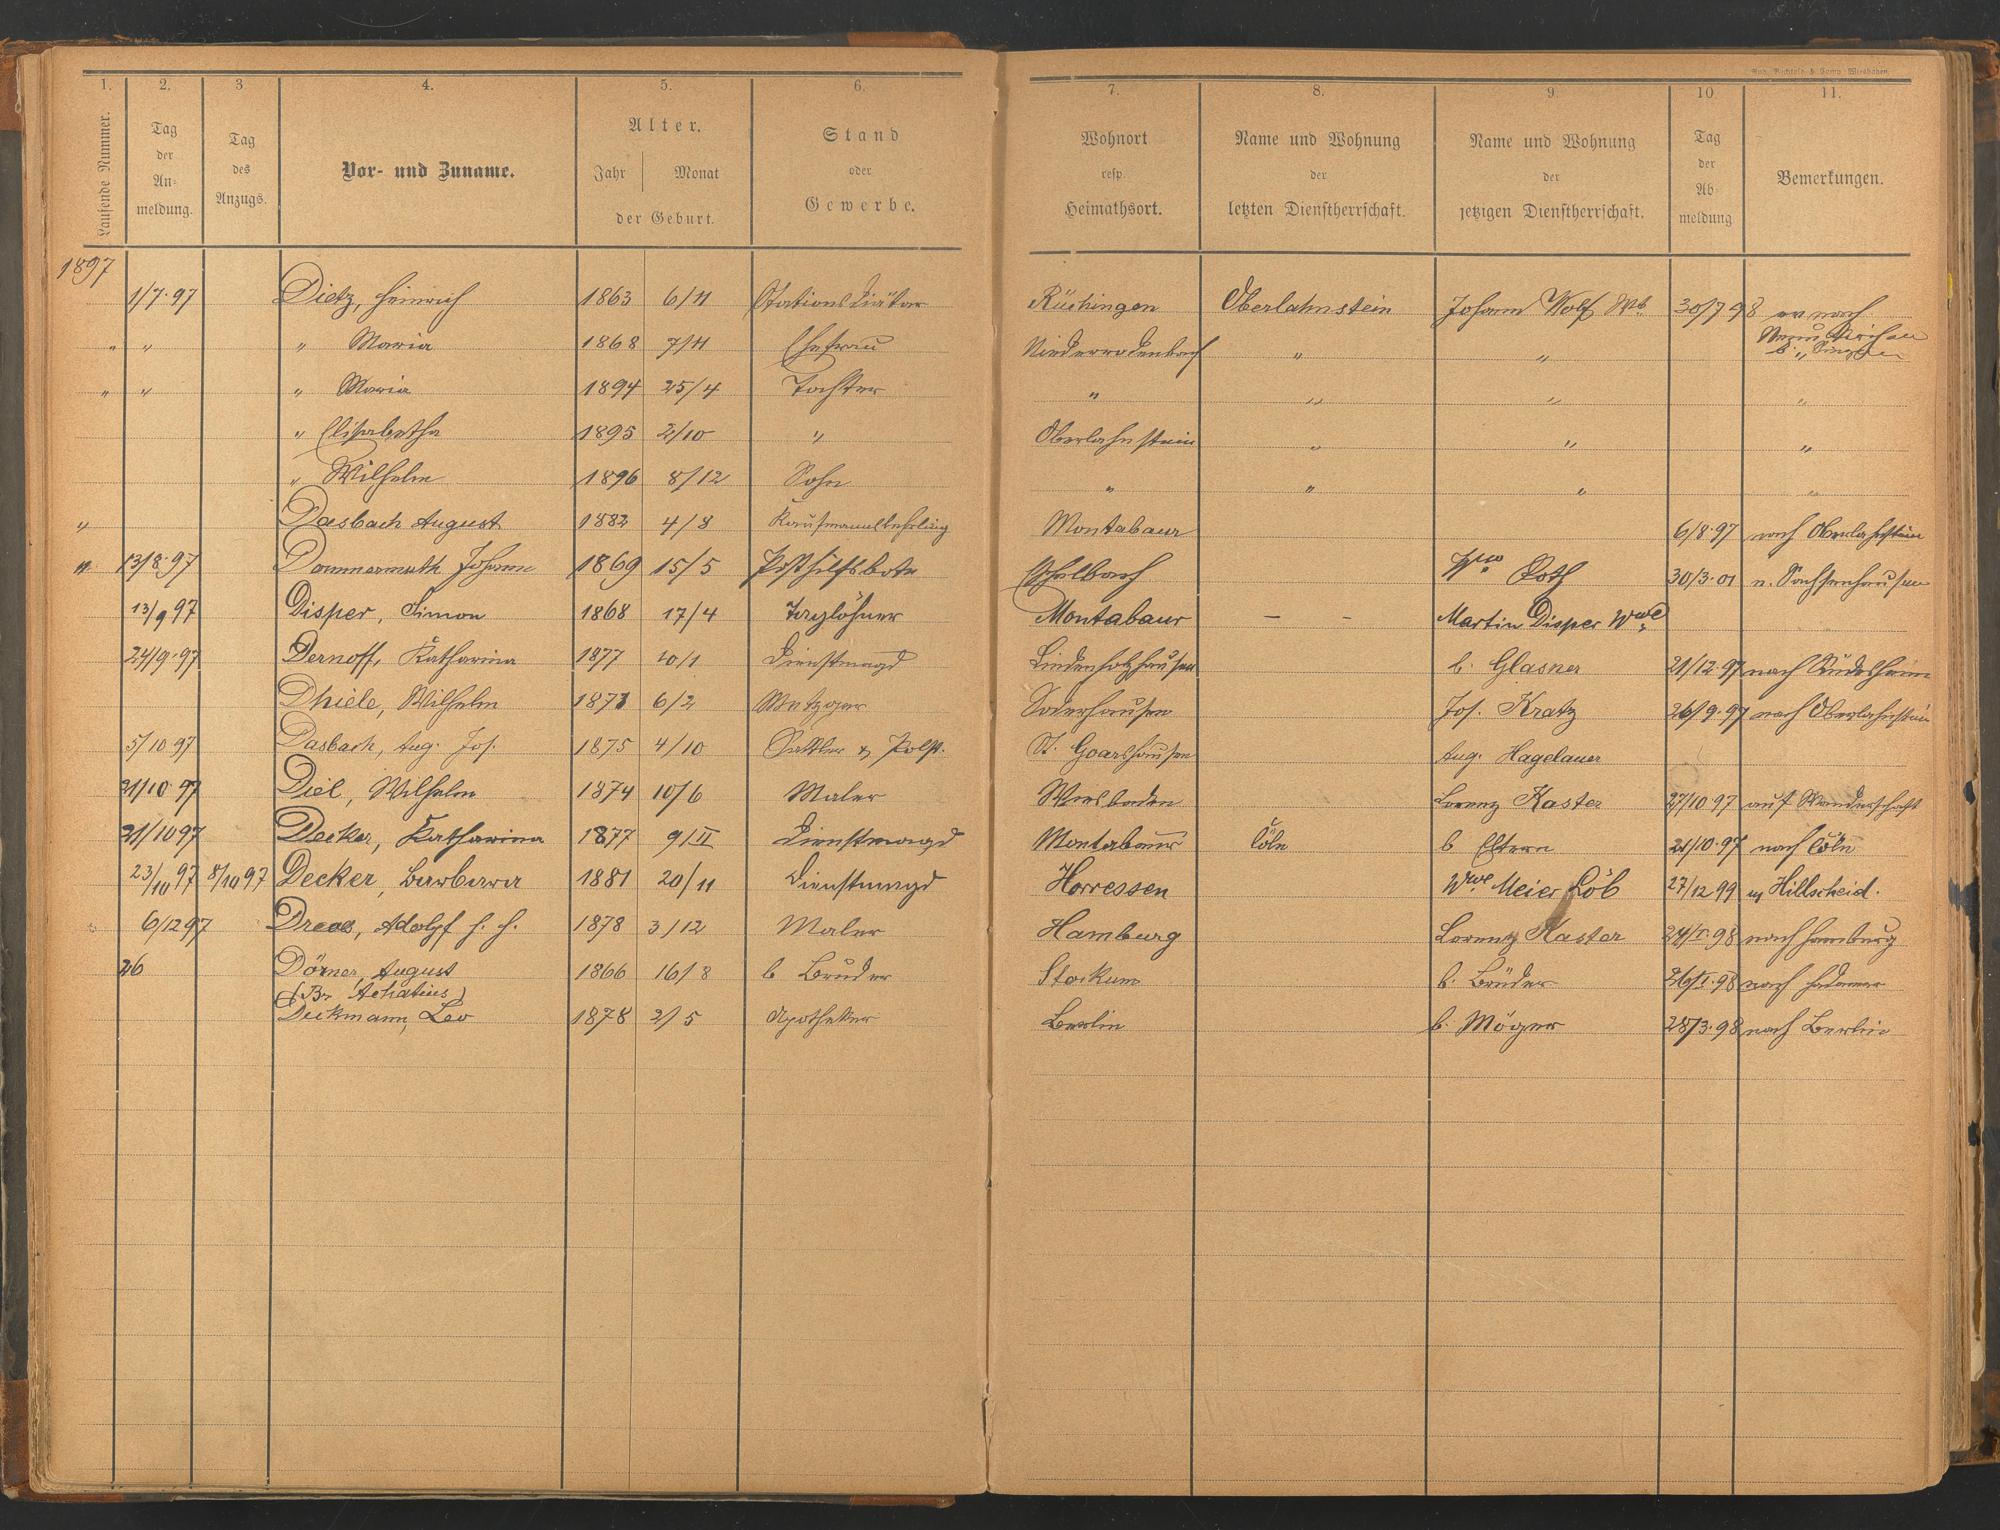 1. 2. 3 4. 5. 6. 7. 8. 9. 10 11.
Laufende Nummer. Tag der Anmeldung. Tag des Anzugs. Vor- und Zuname. Alter. Jahr Monat der Geburt. Stand oder Gewerbe. Wohnort resp. Heimathsort. Name und Wohnung der letzten Dienstherrschaft. Name und Wohnung der jetzigen Dienstherrschaft. Tag der Abmeldung Bemerkungen.
1897
1/7.97 Dietz, Heinrich 1863 6/11 Stationsdiätar Rüchingen Oberlahnstein Johann Wolf Wb 30/7 98 nach
" " " Maria 1868 7/11 Ehefrau Niederrodenbach " "
" " " Maria 1894 25/4 Tochter " " " "
" Elisabetha 1895 2/10 " Oberlahnstein " " "
" Wilhelm 1896 8/12 Sohn " " " "
" Dasbach August 1882 4/8 Kaufmannslehrling Montabaur 6/8.97 nach Oberlahnstein
" 13/8.97 Dommermuth Johann 1869 15/5 Posthilfsbote Eschelbach Roth 30/3.01 n. Sachsenhausen
13/9 97 Disper, Simon 1868 17/4 Taglöhner Montabaur — - Martin Disper Wwe
24/9.97 Dernoff, Katharina 1877 20/1 Dienstmagd Lindenholzhausen b. Glasner 21/12.97 nach Rüdesheim
Dhiele, Wilhelm 1871 6/2 Metzger Jos. Kratz 26/9.97 nach Oberlahnstein
5/10 97 Dasbach, Aug. Jos. 1875 4/10 Sattler & Polst. St. Goarshausen Aug. Hagelauer
21/10 97 Diel, Wilhelm 1874 10/6 Maler Wiesbaden Lorenz Kaster 27/10 97 auf Wanderschaft
21/10 97 Decker, Katharina 1877 9/II Dienstmagd Montabaur Cöln b Eltern 21/10.97 nach Cöln
23/10 97 8/10 97 Decker, Barbara 1881 20/11 Dienstmagd Horressen Wwe Meier Löb 27/12 99 n Hillscheid.
6/12 97 Drees, Adolf H. H. 1878 3/12 Maler Hamburg Lorenz Kaster 24/I.98 nach Hamburg
26 Dörner, August 1866 16/8 b Bruder Stockum b. Brüder 26/I.98 nach Hadamar
(Br Achatius)
Deikmann, Leo 1878 2/5 Apotheker Berlin b. Möger 28/3.98 nach Berlin